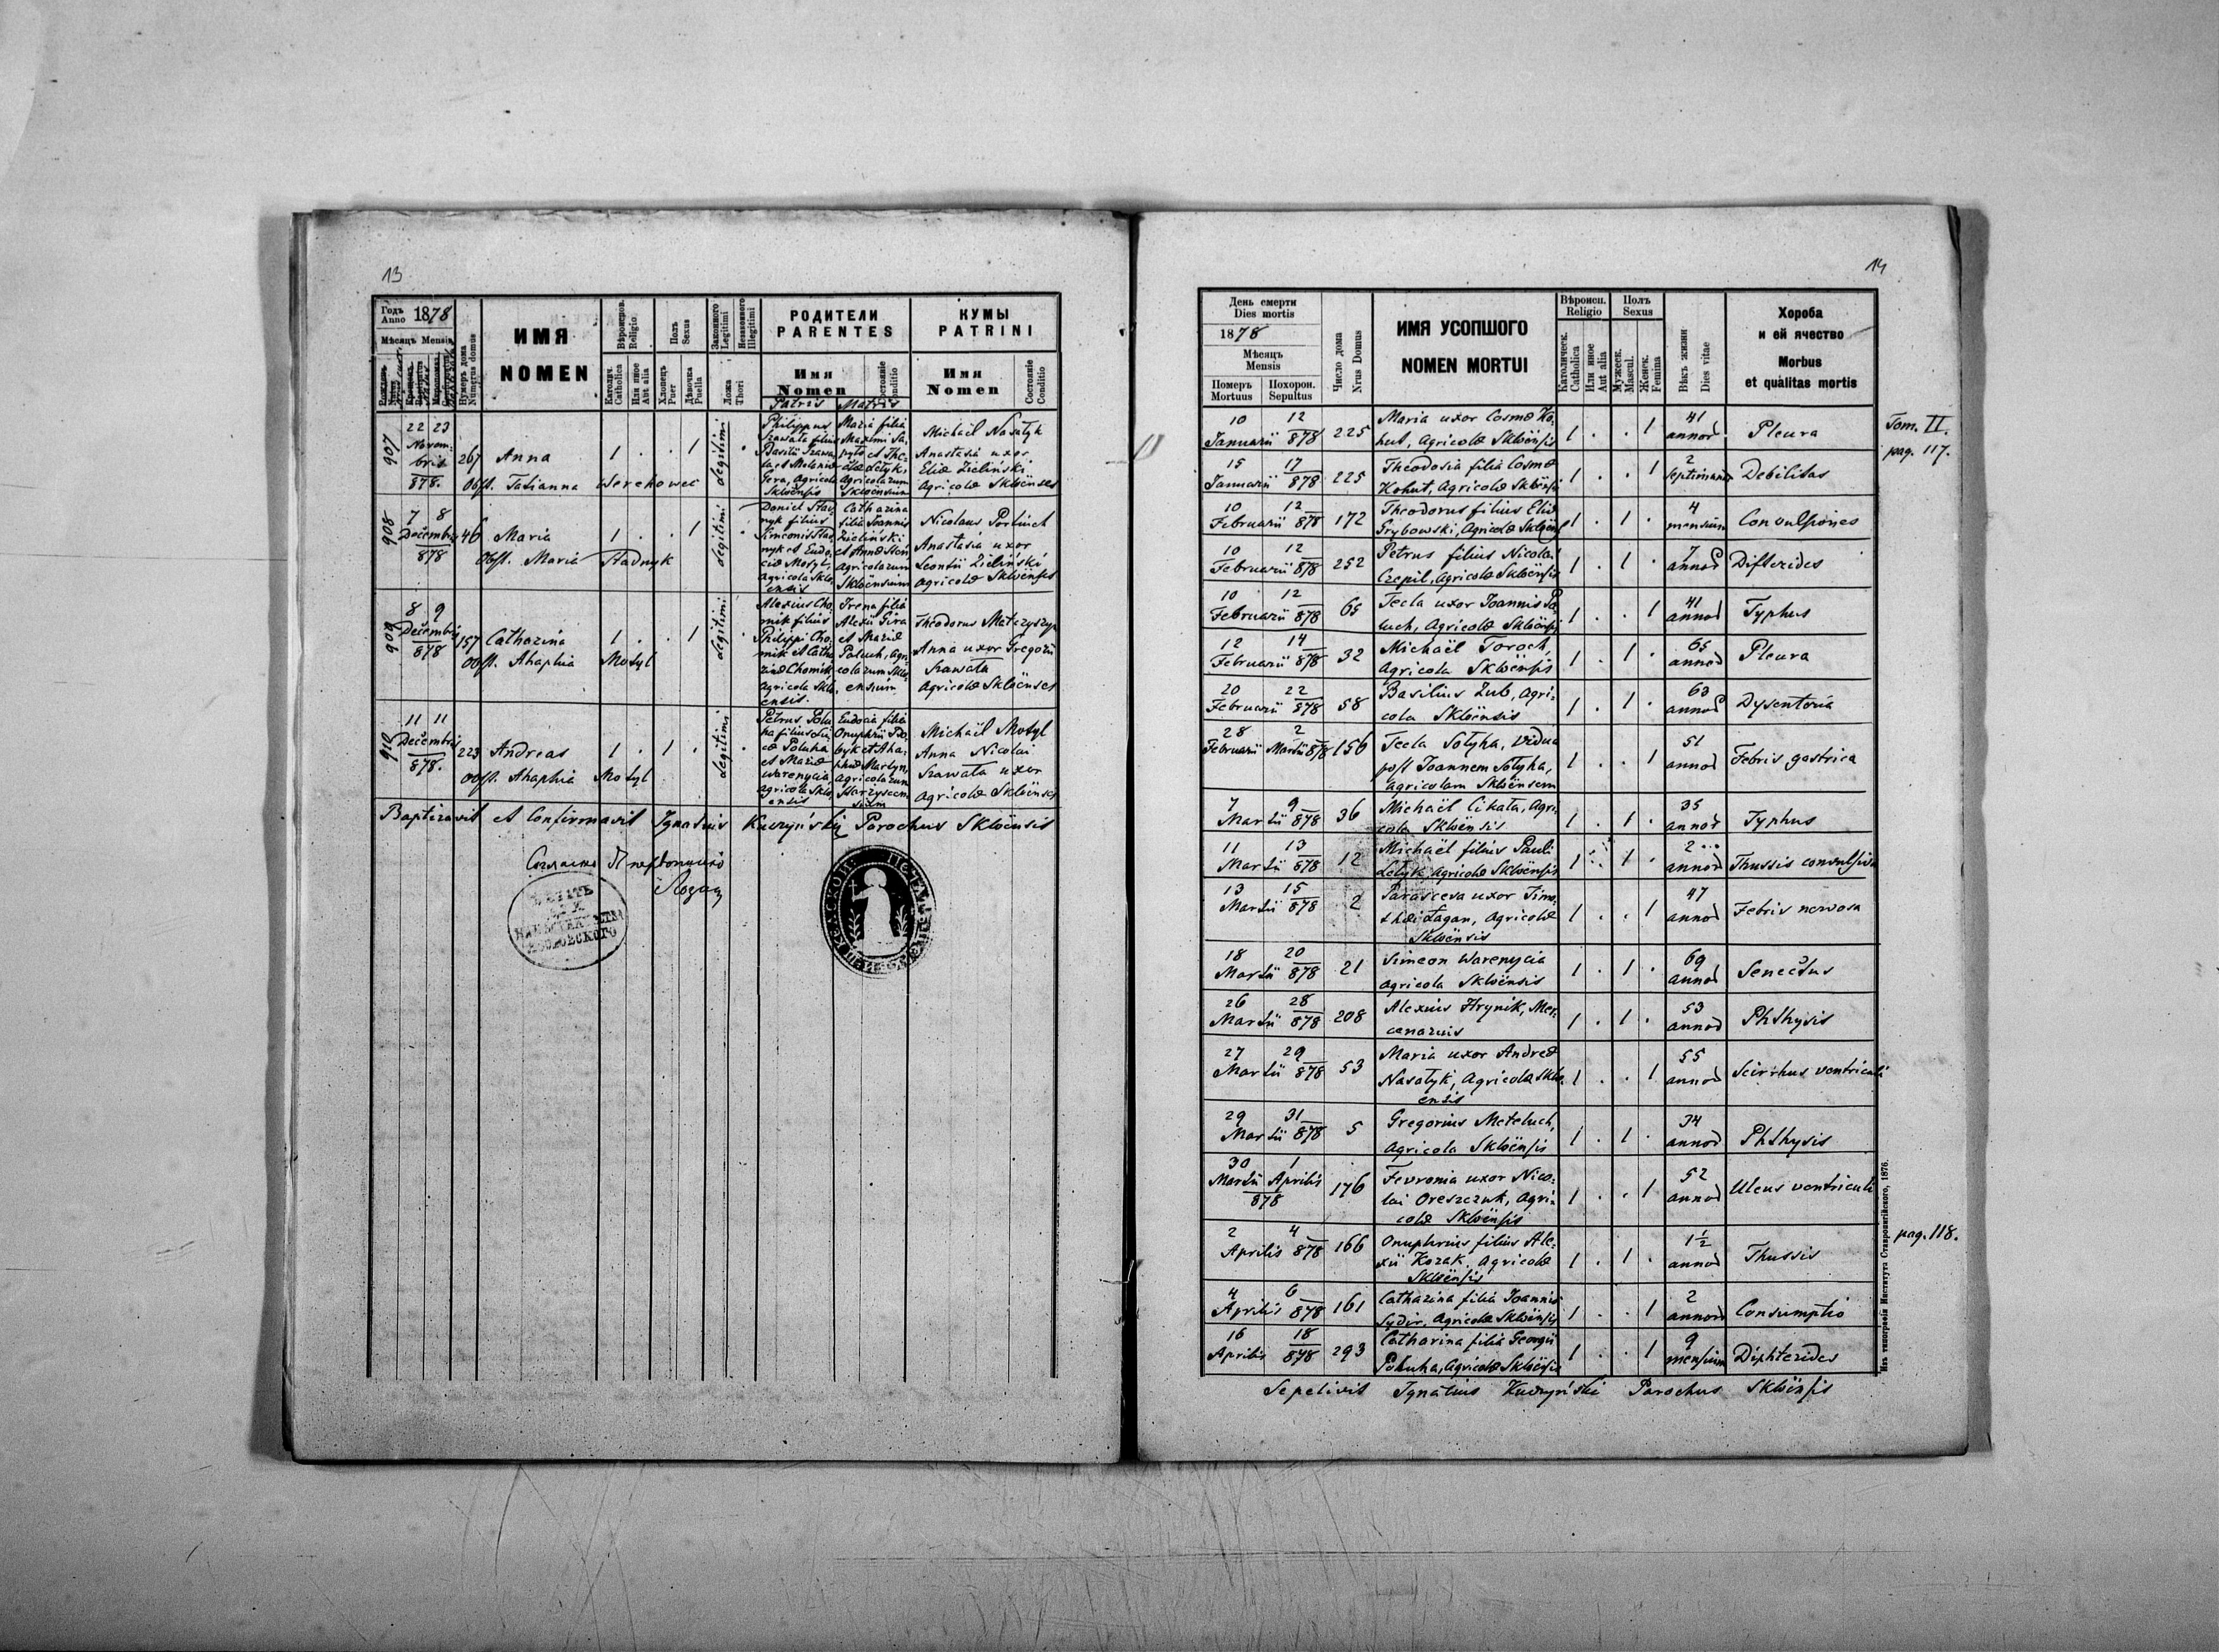 13
Годъ
Anno 1878
Мѣсяцъ Mensis
Нумеръ дома
Numerus domus
ИМЯ
NOMEN
Вѣроиспов.
Religio
Католич.
Catholica
Или иное
Aut alia
Полъ
Sexus
Хлопець
Puer
Дѣвочка
Puella
Законного
Legitimi
Незаконного
Illegitimi
Ложа
Thori
РОДИТЕЛИ
PARENTES
Имя
Nomen
Состояніе
Conditio
Patris Matris
КУМЫ
PATRINI
Имя
Nomen
Состояніе
Conditio
907
22 23
Novem-
bris
878.
267
Anna
1 . . 1
Legitimi
Obst. Tatianna Werchowec
Philippus
Szawała filius
Basilii Szawa-
Agricola
Skloënsis
Maria filia
Maximi
Agricolarum
Skloënsium
Michaël Nasatyk
Anastasia uxor
Eliæ Zieliński
Agricolæ Skloënses
908
7 8
Decembris
878
46
Maria
1 . . 1
Legitimi
Obst. Maria Hadnyk
Daniel
nyk filius
Simeonis
nyk et Eudo-
ciæ Motyl,
Agricola Sklo-
ensis
Catharina
filia Joannis
Zieliński
et Annæ
Agricolarum
Skloënsium
Nicolaus
Anastasia uxor
Leontii Zieliński
Agricolæ Skloënses
909
8 9
Decembris
878
157
Catharina
1 . . 1
Legitimi
Obst. Ahaphia Motyl
Alexius Cho-
mik filius
Philippi Cho-
mik et Catha-
rinæ Chomik
Agricola Sklo-
ensis.
Irena filia
Alexii Gira
et Mariæ
Paluch, Agri-
colarum Sklo-
ensium
Theodorus Matczyszyn
Anna uxor Gregorii
Szawała
Agricolæ Skloënses
910
11 11
Decembris
878.
223
Andreas
1 . 1 .
Legitimi
Obst. Ahaphia Motyl
Petrus Polu-
ha filius
Poluha
et Mariæ
Warenycia
Agricola Sklo-
ensis
Eudocia filia
Onuphrii
byk et Aha-
phiæ Martyn,
Agricolarum
Michaël Motyl
Anna Nicolai
Szawała uxor
Agricolæ Skloënses
Baptizavit et Confirmavit Ignatius Kuczyński Parochus Skloënsis
14
День смерти
Dies mortis
1878
Мѣсяць
Mensis
Померъ
Mortuus
Похорон.
Sepultus
Число дома
Nrus Domus
ИМЯ УСОПШОГО
NOMEN MORTUI
Вѣроисп.
Religio
Католическ.
Catholica
Или иное
Aut alia
Полъ
Sexus
Мужеск.
Mascul.
Женск.
Femina
Вѣкъ жизни
Dies vitae
Хороба
и ей ячество
Morbus
et qualitas mortis
10 Januarii 12 878 225
Maria uxor Cosmæ Ko-
hut, Agricolæ Skloënsis
1 . . 1 41 annos Pleura
Tom. II.
pag. 117.
15 Januarii 17 878 225
Theodosia filia Cosmæ
Kohut, Agricolæ Skloënsis
1 . . 1 2 septimanas Debilitas
10 Februarii 12 878 172
Theodorus filius Eliæ
Grybowski, Agricolæ Skloënsis
1 . 1 . 4 mensium Convulsiones
10 Februarii 12 878 252
Petrus filius Nicolai
Czepil, Agricolæ Skloënsis
1 . 1 . 7 annos Difterides
10 Februarii 12 878 65
Tecla uxor Joannis Pa-
luch, Agricolæ Skloënsis
1 . . 1 41 annos Typhus
12 Februarii 14 878 32
Michaël Toroch,
Agricola Skloënsis
1 . 1 . 65 annos Pleura
20 Februarii 22 878 58
Basilius Zub, Agri-
cola Skloënsis
1 . 1 . 63 annos Dysenteria
28 Februarii 2 Martii 878 156
Tecla Sołyha, vidua
post Joannem Sołyha,
Agricolam Skloënsem
1 . . 1 51 annos Febris gastrica
7 Martii 9 878 36
Michaël Cikała, Agri-
cola Skloënsis
1 . 1 . 35 annos Typhus
11 Martii 13 878 12
Michaël filius Pauli
Letyk, Agricolæ Skloënsis
1 . 1 . 2 annos Thussis convulsiva
13 Martii 15 878 2
Parasceva uxor Timo-
thæi Łagan, Agricolæ
Skloënsis
1 . . 1 47 annos Febris nervosa
18 Martii 20 878 21
Simeon Warenycia
Agricola Skloënsis
1 . 1 . 69 annos Senectus
26 Martii 28 878 208
Alexius Hrynik, Mer-
cenarius
1 . 1 . 53 annos Phthysis
27 Martii 29 878 53
Maria uxor Andreæ
Nasatyk, Agricolæ Sklo-
ensis
1 . . 1 55 annos Scirrhus ventriculi
29 Martii 31 878 5
Gregorius Meteluch,
Agricola Skloënsis
1 . 1 . 34 annos Phthysis
30 Martii 1 Aprilis 878 176
Fevronia uxor Nico-
lai Oreszczuk, Agri-
colæ Skloënsis
1 . . 1 52 annos Ulcus ventriculi
2 Aprilis 4 878 166
Onuphrius filius Ale-
xii Kozak, Agricolæ
Skloënsis
1 . 1 . 1½ annos Thussis
pag. 118.
4 Aprilis 6 878 161
Catharina filia Joannis
Sydir, Agricolæ Skloënsis
1 . . 1 2 annos Consumptio
16 Aprilis 18 878 293
Catharina filia Georgii
Poluha, Agricolæ Skloënsis
1 . . 1 9 mensium Diphterides
Sepelivit Ignatius Kuczyński Parochus Skloënsis
Изъ типографіи Института Ставропигійского, 1876.